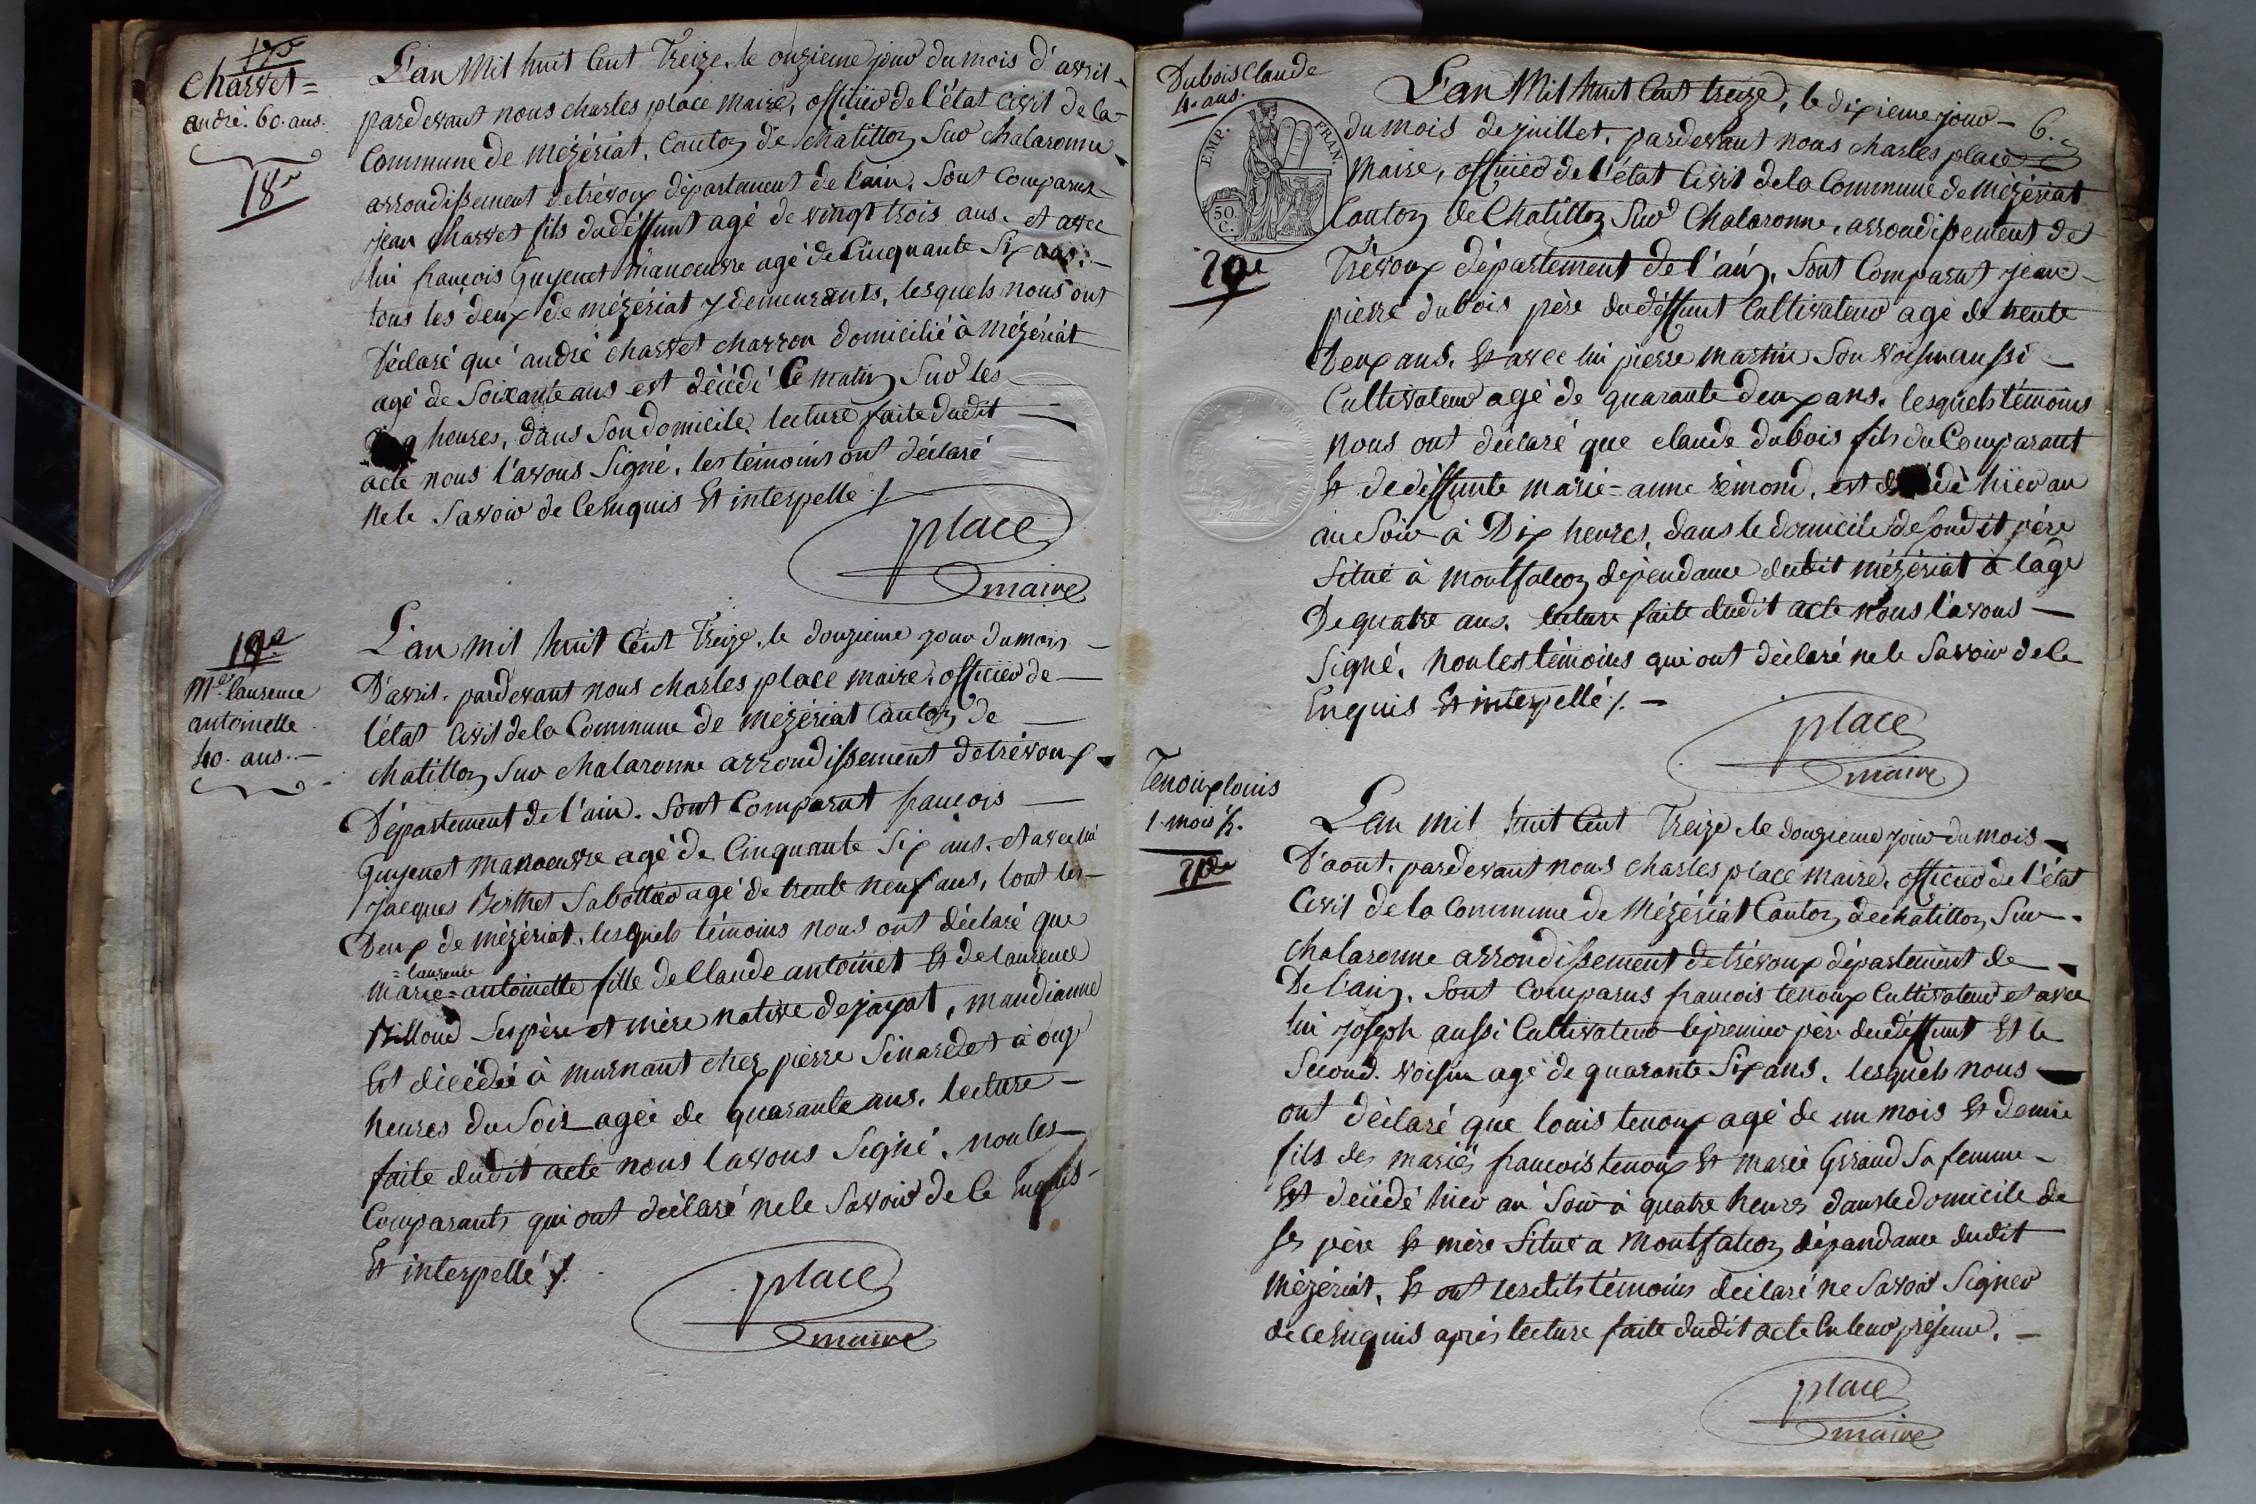 Charvet =
andré. 60. ans.
18e
L'an Mil huit Cent Treize, le onzieme jour du mois d'avril
pardevant nous charles place maire, officier de l'état Civil de la
Commune de mézériat, Canton de châtillon Sur chalaronne
arrondissement de trévoux département de l'ain, Sont Comparus
jean charvet fils du déffunt agé de vingt trois ans, et avec
lui françois Guyenet manoeuvre agé de Cinquante Six ans,
tous les deux de mézériat y demeurants, lesquels nous ont
Déclaré que andré charvet charron domicilié à Mézériat
agé de Soixante ans est décédé Ce matin Sur les
heures, dans Son domicile, lecture faite dudit
acte nous l'avons Signé, les témoins ont déclaré
ne le Savoir de Ce Enquis Et interpellé ./.
place
maire
19e
Me. laurence
antoinette
40. ans.
L'an mil huit Cent Treize, le douzieme jour du mois
D'avril, pardevant nous charles place maire, officier de
l'état Civil de la Commune de mézériat Canton de
chatillon Sur chalaronne arrondissement de trévoux
Département de l'ain. Sont Comparut françois
Guyenet manoeuvre agé de Cinquante Six ans. et avec lui
jacques Berthet Sabottier agé de trente neuf ans, tout les
Deux de mézériat, lesquels témoins nous ont déclaré que
= laurence
marie = antoinette fille de Claude antoinet Et de laurence
Billoud Ses père et mère native de jayat, mandianne
Est décédée à murnant chez pierre Sinardet à onze
heures du Soir agée de quarante ans, lecture
faite dudit acte nous l'avons Signé, non les
Comparants qui ont déclaré ne le Savoir de Ce Enquis
Et interpellé ./.
place
maire
Dubois Claude
4. ans.
EMP. FRAN.
50.
C.
20e
6.
L'an Mil huit Cent treize, le dixieme jour
du mois de juillet, pardevant nous charles place
Maire, officier de l'état Civil de la Commune de Mézériat
Canton de Chatillon Sur Chalaronne, arrondissement de
Trévoux département de l'ain, Sont Comparut jean
pierre dubois père du déffunt Cultivateur agé de trente
Deux ans, Et avec lui pierre martin Son voisin aussi
Cultivateur agé de quarante deux ans, lesquels témoins
nous ont déclaré que claude dubois fils du Comparant
Et de déffunte marie = anne rémond, est décédé hier au
au Soir à Dix heures, dans le domicile de Sondit père
Situé à montfalcon dépendance dudit mézériat à l'age
De quatre ans, lecture faite dudit acte nous l'avons
Signé, non les témoins qui ont déclaré ne le Savoir de Ce
Enquis Et interpellé ./.
place
maire
Tenoux louis
1. mois ½.
21e
L'an mil huit Cent Treize, le douzieme jour du mois
D'aout, pardevant nous charles place maire, officier de l'état
Civil de la Commune de Mézériat Canton de chatillon Sur
chalaronne arrondissement de trévoux département de
De l'ain, Sont Comparus francois tenoux Cultivateur et avec
lui joseph aussi Cultivateur le premier père du déffunt Et le
Second. voisin agé de quarante Six ans, lesquels nous
ont déclaré que louis tenoux agé de un mois Et demie
fils des mariés francois tenoux Et marie Girand Sa femme
Est décédé hier au Soir à quatre heures dans le domicile de
Ses père Et mère Situé a Montfalcon dépandance dudit
Mézériat, Et ont lesdits témoins déclaré ne Savoir Signer
de Ce Enquis après lecture faite dudit acte En leur présence.
place
maire